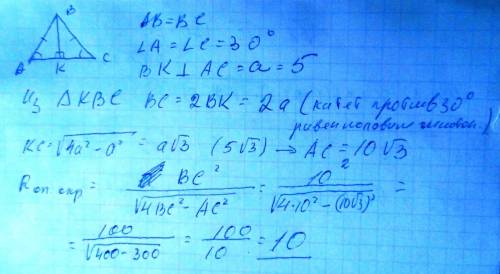 B
A K C
AB = BC
∠A = ∠C = 30°
BK ⊥ AC = a = 5
Из △KBC BC = 2BK = 2a (катет против 30°
равен половине гипотен.)
KC = √4a² - a² = a√3 (5√3) → AC = 10√3
Rоп. окр = BC² / √4BC² - AC² = 10² / √4·10² - (10√3)² =
= 100 / √400 - 300 = 100 / 10 = 10